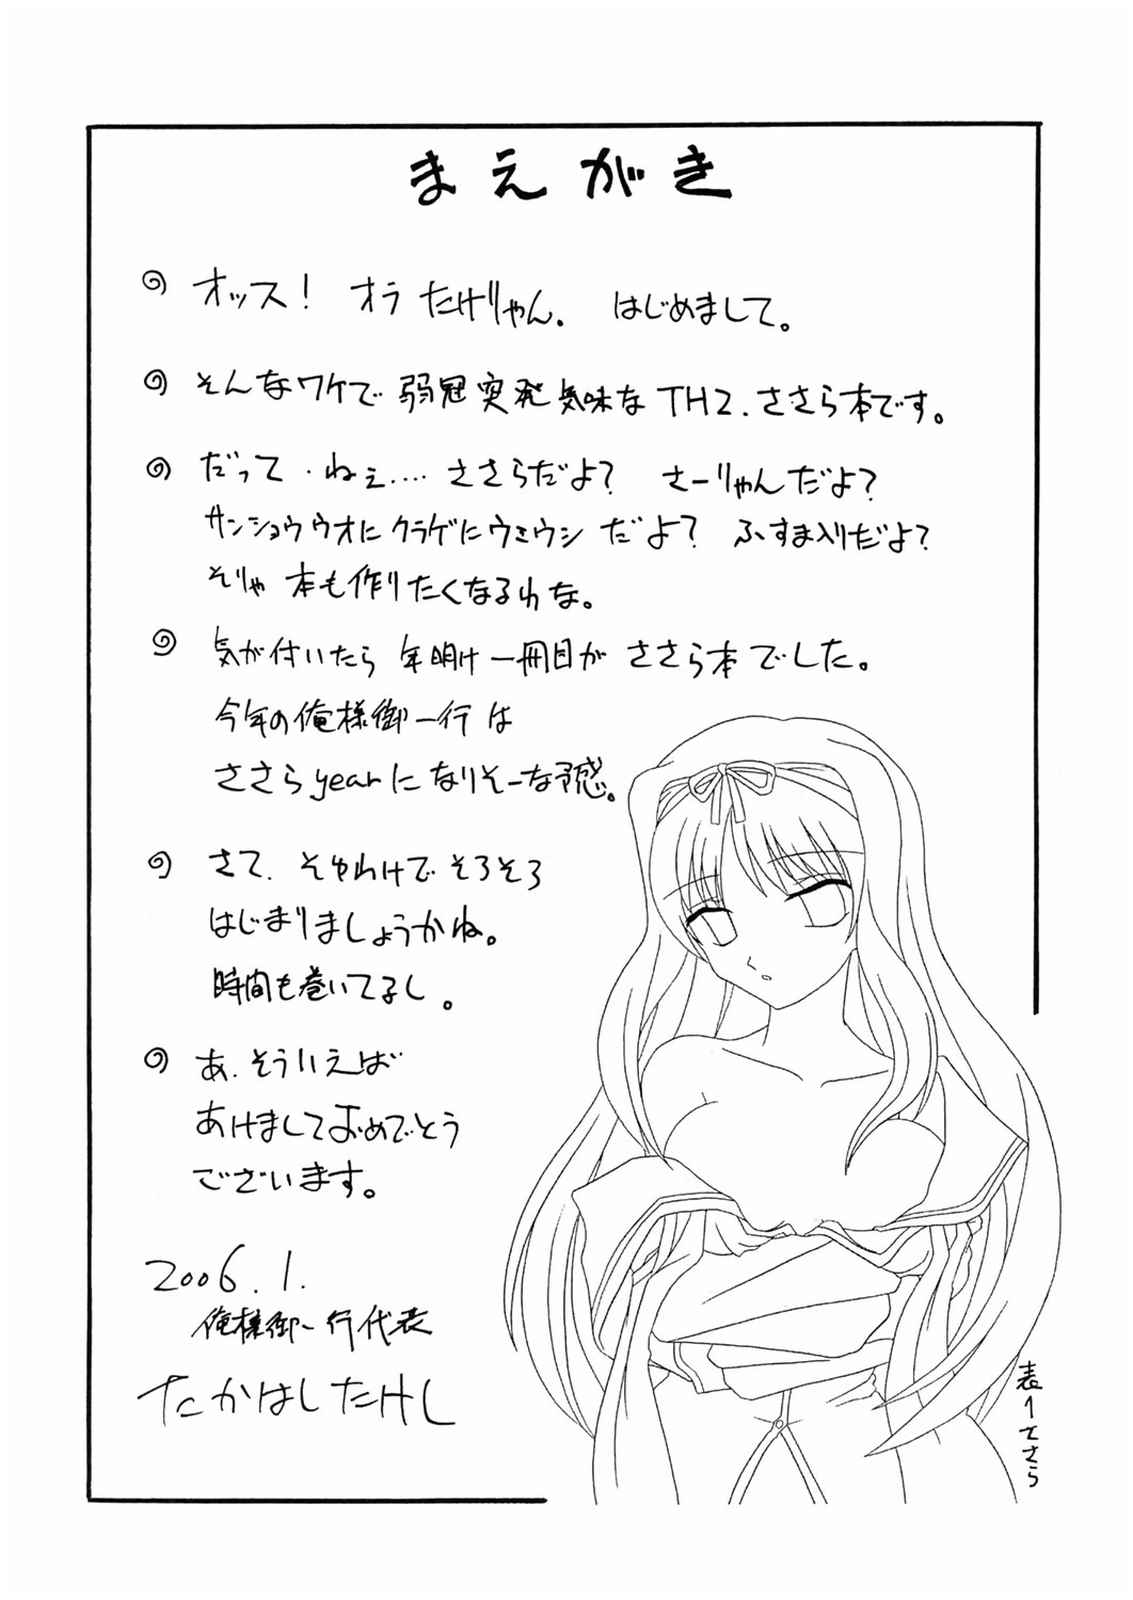 まえがき
オッス! オラ たけりゃん. はじめまして。
そんなワケで 弱冠突発気味な TH2. ささら本です。
だって・ねぇ‥‥ ささらだよ? さーりゃんだよ?
サンショウウオに クラゲに ウミウシ だよ? ふすま入りだよ?
そりゃ 本も作りたくなるわな。
気が付いたら 年明け一冊目が ささら本でした。
今年の俺様御一行は
ささら yearに なりそーな予感。
さて. そゆわけで そろそろ
はじまりましょうかね。
時間も巻いてるし。
あ. そういえば
あけましておめでとう
ございます。
2006.1.
俺様御一行代表
たかはしたけし
表1でさら